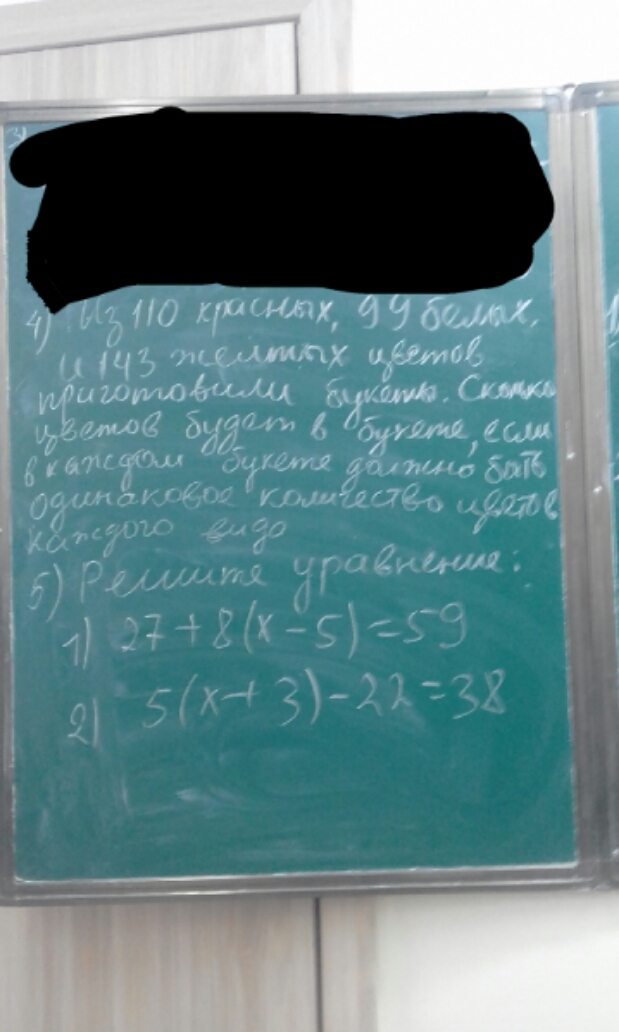 4) Из 110 красных, 99 белых,
и 143 желтых цветов
приготовили букеты. Сколько
цветов будет в букете, если
в каждом букете должно быть
одинаковое количество цветов
каждого вида
5) Решите уравнение:
1) 27+8(x-5)=59
2) 5(x+3)-22=38